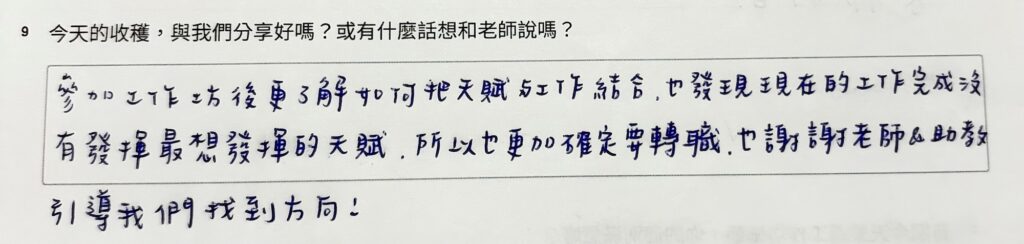 9 今天的收穫,與我們分享好嗎?或有什麼話想和老師說嗎?
參加工作坊後更了解如何把天賦与工作結合,也發現現在的工作完成沒
有發揮最想發揮的天賦,所以也更加確定要轉職,也謝謝老師&助教
引導我們找到方向!